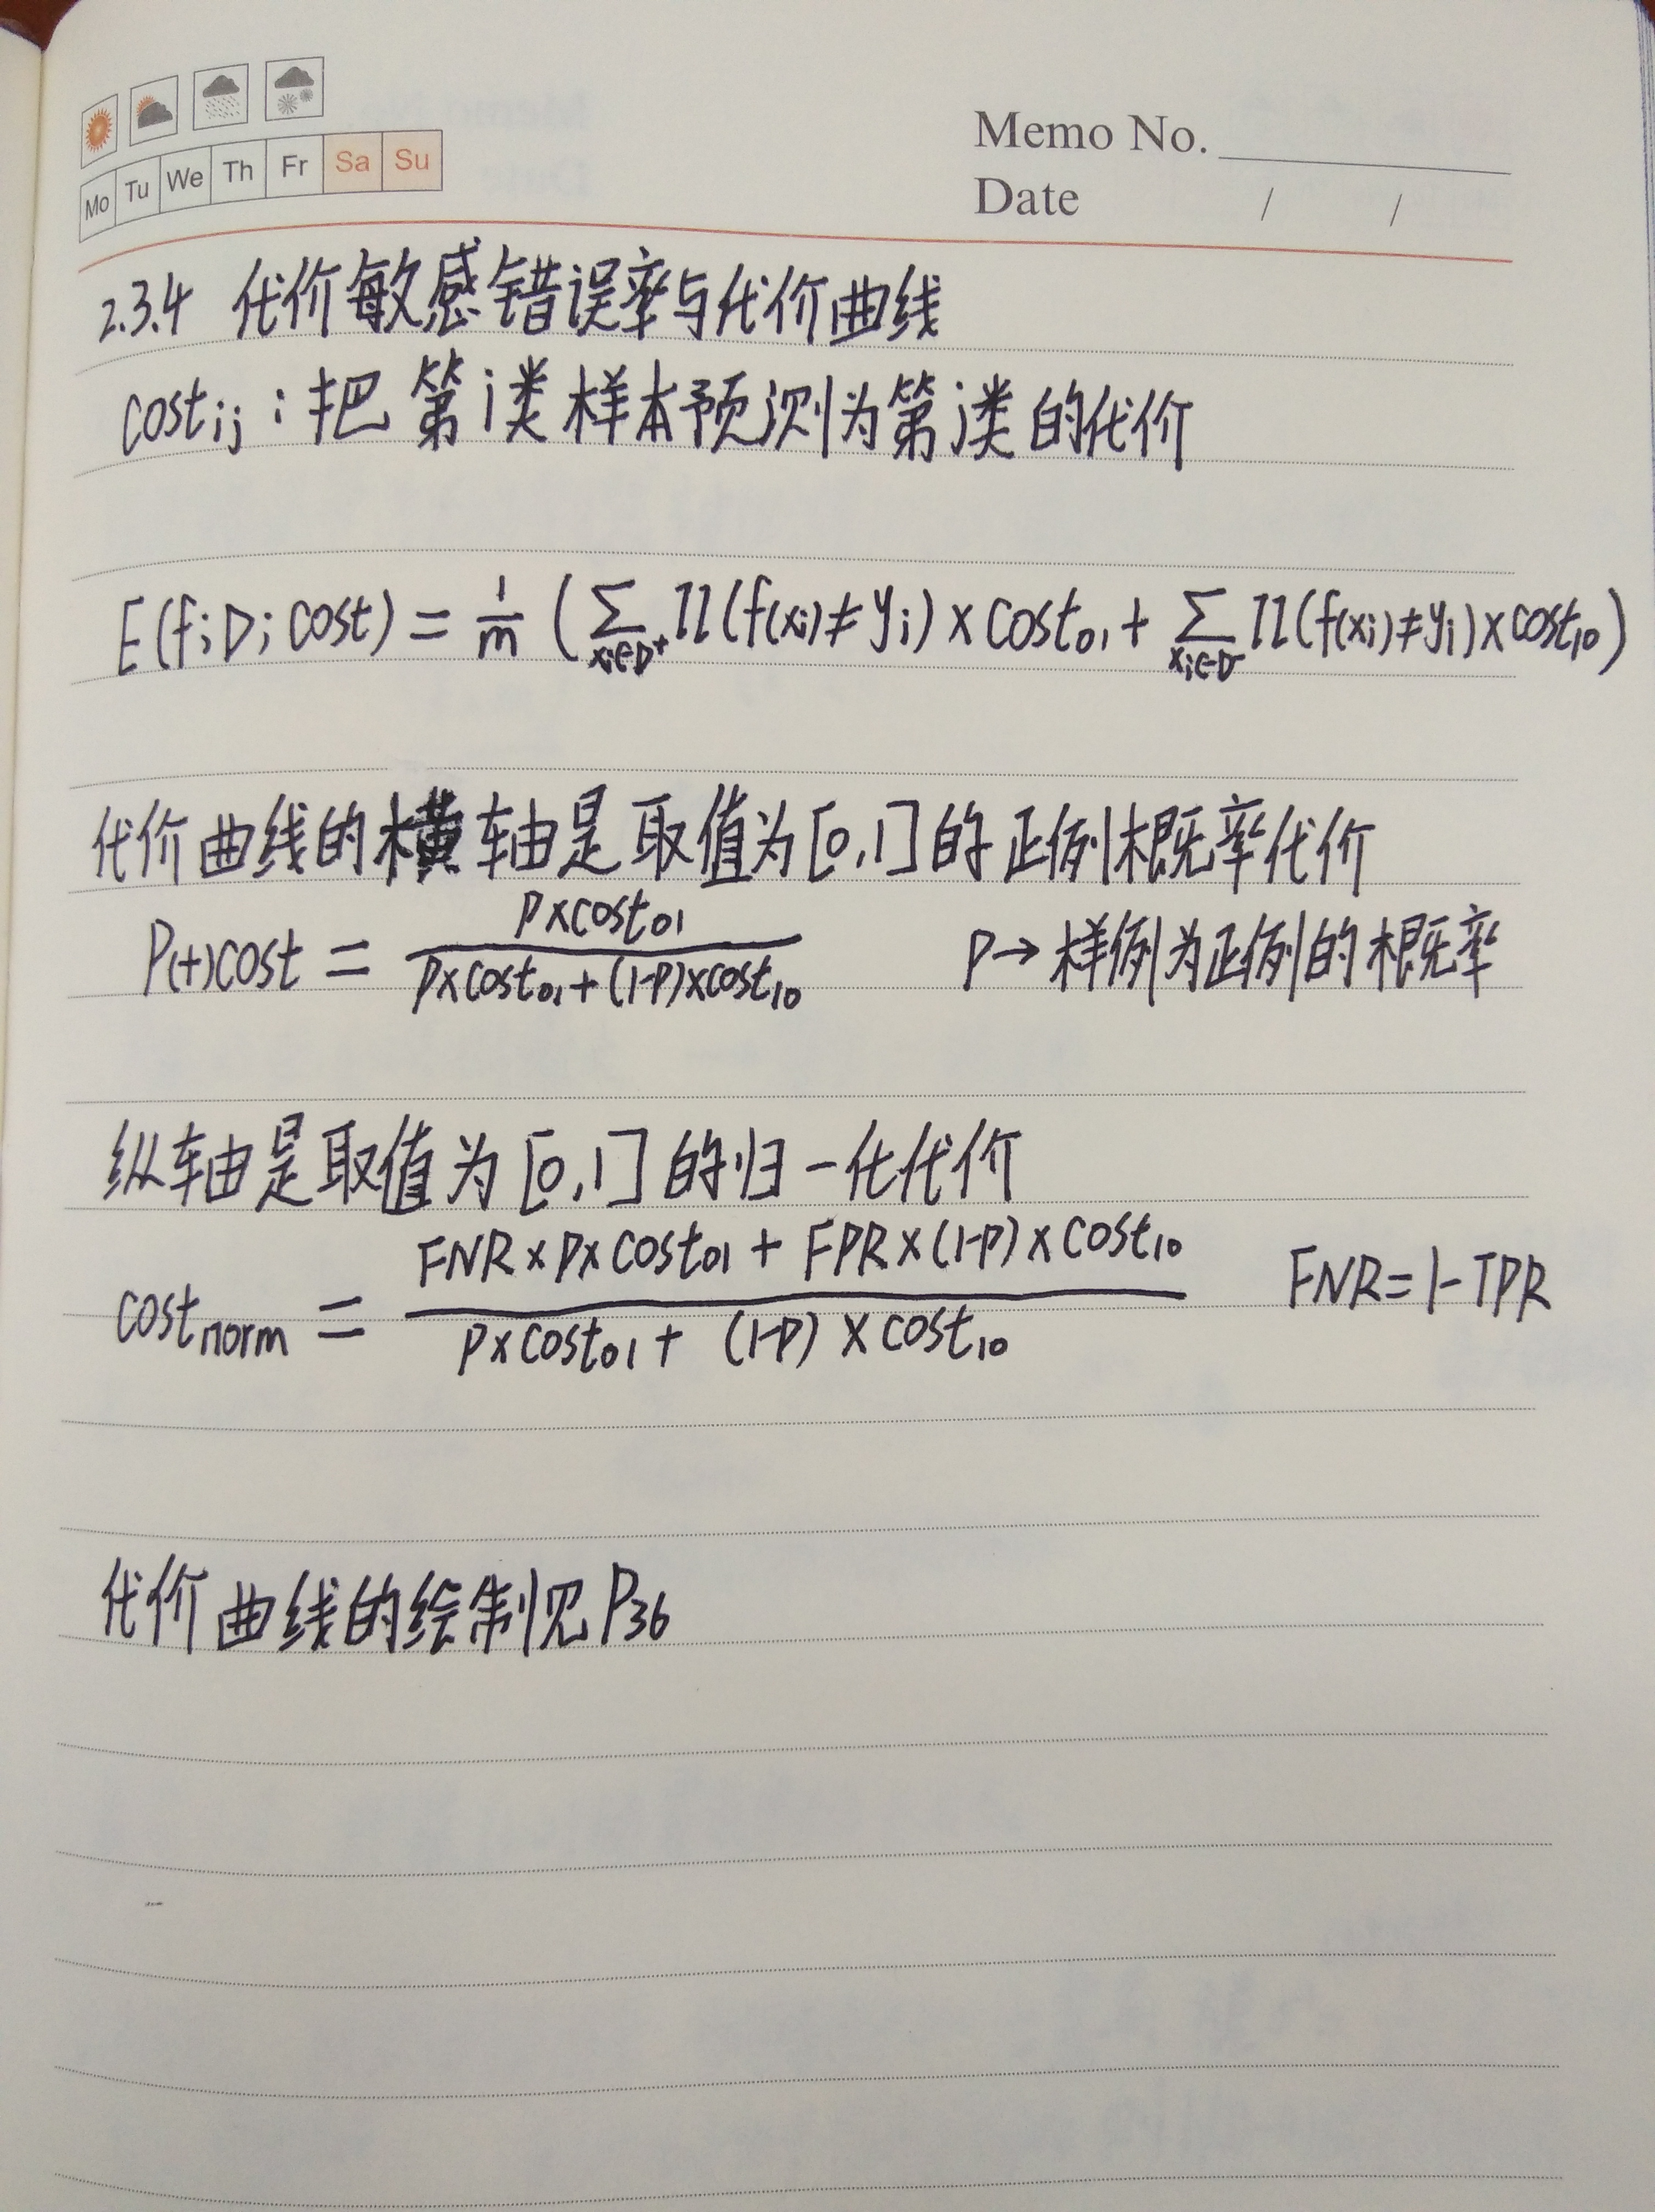 Mo Tu We Th Fr Sa Su
Memo No.
Date / /
2.3.4 代价敏感错误率与代价曲线
cost_ij : 把第i类样本预测为第j类的代价
E(f;D;cost) = 1/m (∑_{xi∈D⁺} 𝕀(f(xi)≠yi)×cost₀₁ + ∑_{xi∈D⁻} 𝕀(f(xi)≠yi)×cost₁₀)
代价曲线的横轴是取值为[0,1]的正例概率代价
P(+)cost = p×cost₀₁ / (p×cost₀₁+(1-p)×cost₁₀) p→样例为正例的概率
纵轴是取值为[0,1]的归一化代价
cost_norm = (FNR×p×cost₀₁ + FPR×(1-p)×cost₁₀) / (p×cost₀₁+ (1-p)×cost₁₀) FNR=1-TPR
代价曲线的绘制见P36